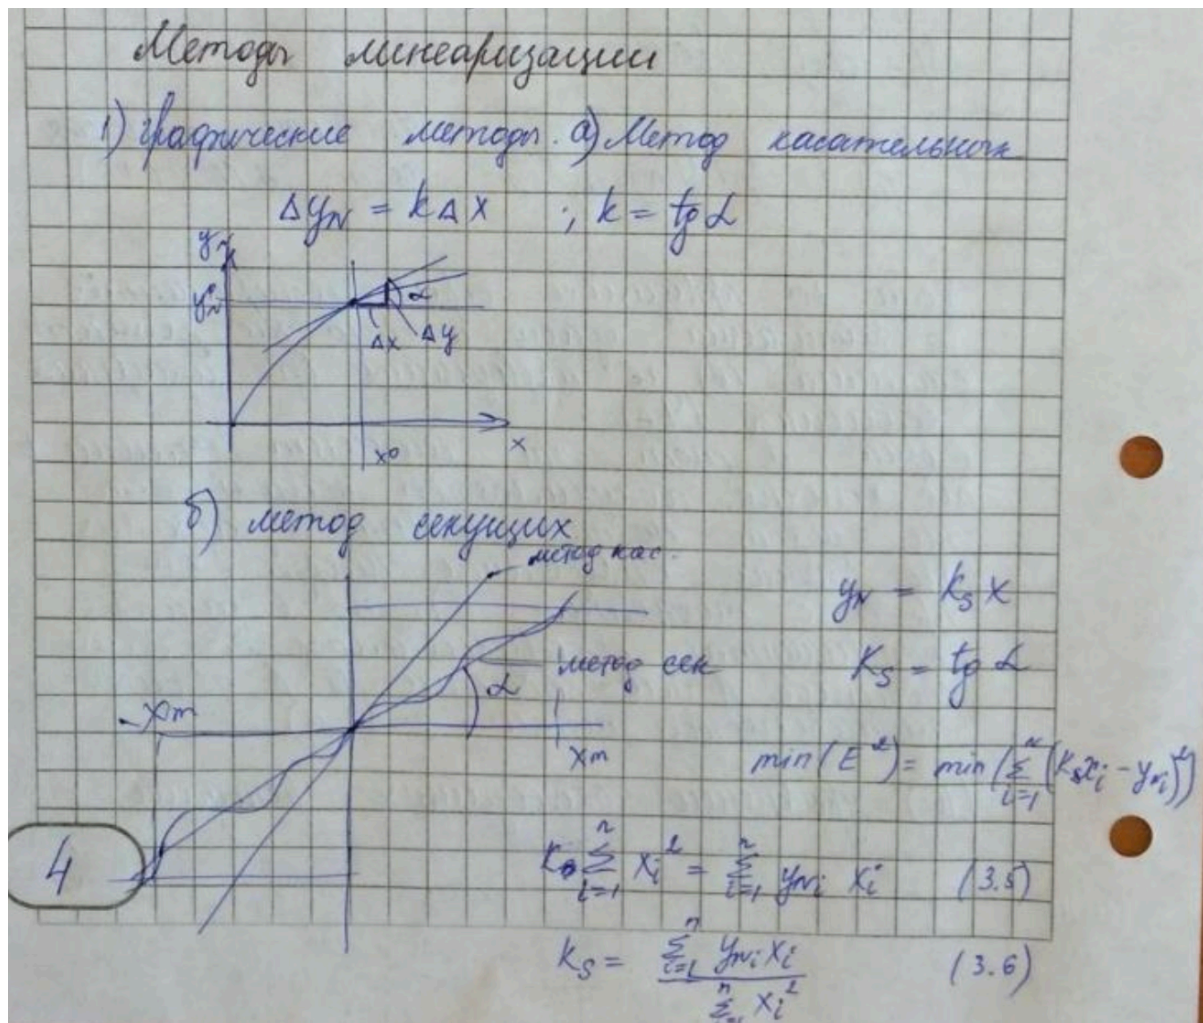 Методы линеаризации
1) Графические методы. а) Метод касательных
Δyₙ = kΔx ; k = tg α
yₙ
yₙ⁰
α
Δx Δy
x⁰
x
б) метод секущих
метод кас.
yₙ = kₛ x
метод сек
α
kₛ = tg α
-xm
xm
min(E²) = min(∑ᵢ₌₁ⁿ (kₛxᵢ - yₙᵢ)²)
4
kₛ ∑ᵢ₌₁ⁿ xᵢ² = ∑ᵢ₌₁ⁿ yₙᵢ xᵢ (3.5)
kₛ = ∑ᵢ₌₁ⁿ yₙᵢ xᵢ / ∑ᵢ₌₁ⁿ xᵢ² (3.6)